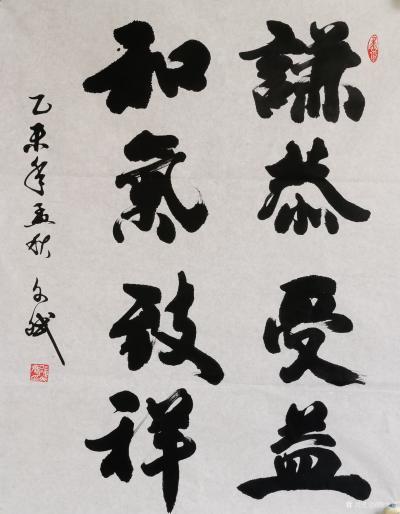 謙恭受益
和氣致祥
乙未年孟秋 文斌